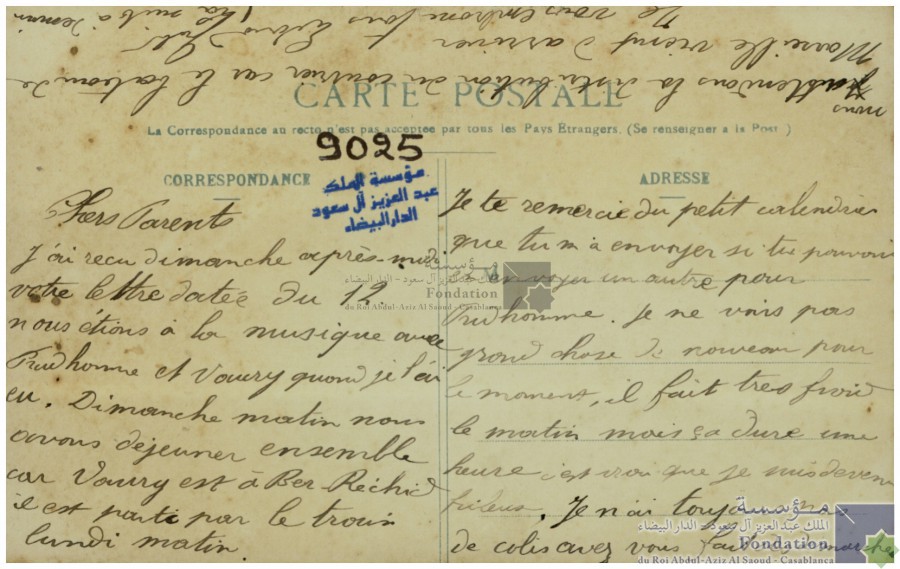 CARTE POSTALE
La Correspondance au recto n'est pas acceptée par tous les Pays Étrangers. (Se renseigner à la Poste)
9025
مؤسسة الملك
عبد العزيز آل سعود
الدار البيضاء
CORRESPONDANCE
Chers Parents
J'ai recu dimanche après-midi
votre lettre datée du 12.
nous étions à la musique avec
Prudhomme et Vaury quand je l'ai
eu. Dimanche matin nous
avons dejeuner ensemble
car Vaury est à Ber-Rechid
il est parti par le train
lundi matin.
ADRESSE
Je te remercie du petit calendrier
que tu m'a envoyer si tu pouvais
envoyer un autre pour
Prudhomme. Je ne vois pas
grand chose de nouveau pour
le moment, il fait très froid
le matin mais ça dure une
heure c'est vrai que je suis devenu
frileux. Je n'ai toujours pas
de colis avez vous fait
nous attendions la distribution du courrier car le bateau de
Marseille vient d'arriver
Je vous embrasse tous
La suite à demain
مؤسسة
الملك عبد العزيز آل سعود - الدار البيضاء
Fondation
du Roi Abdul-Aziz Al Saoud - Casablanca
مؤسسة
الملك عبد العزيز آل سعود - الدار البيضاء
Fondation
du Roi Abdul-Aziz Al Saoud - Casablanca